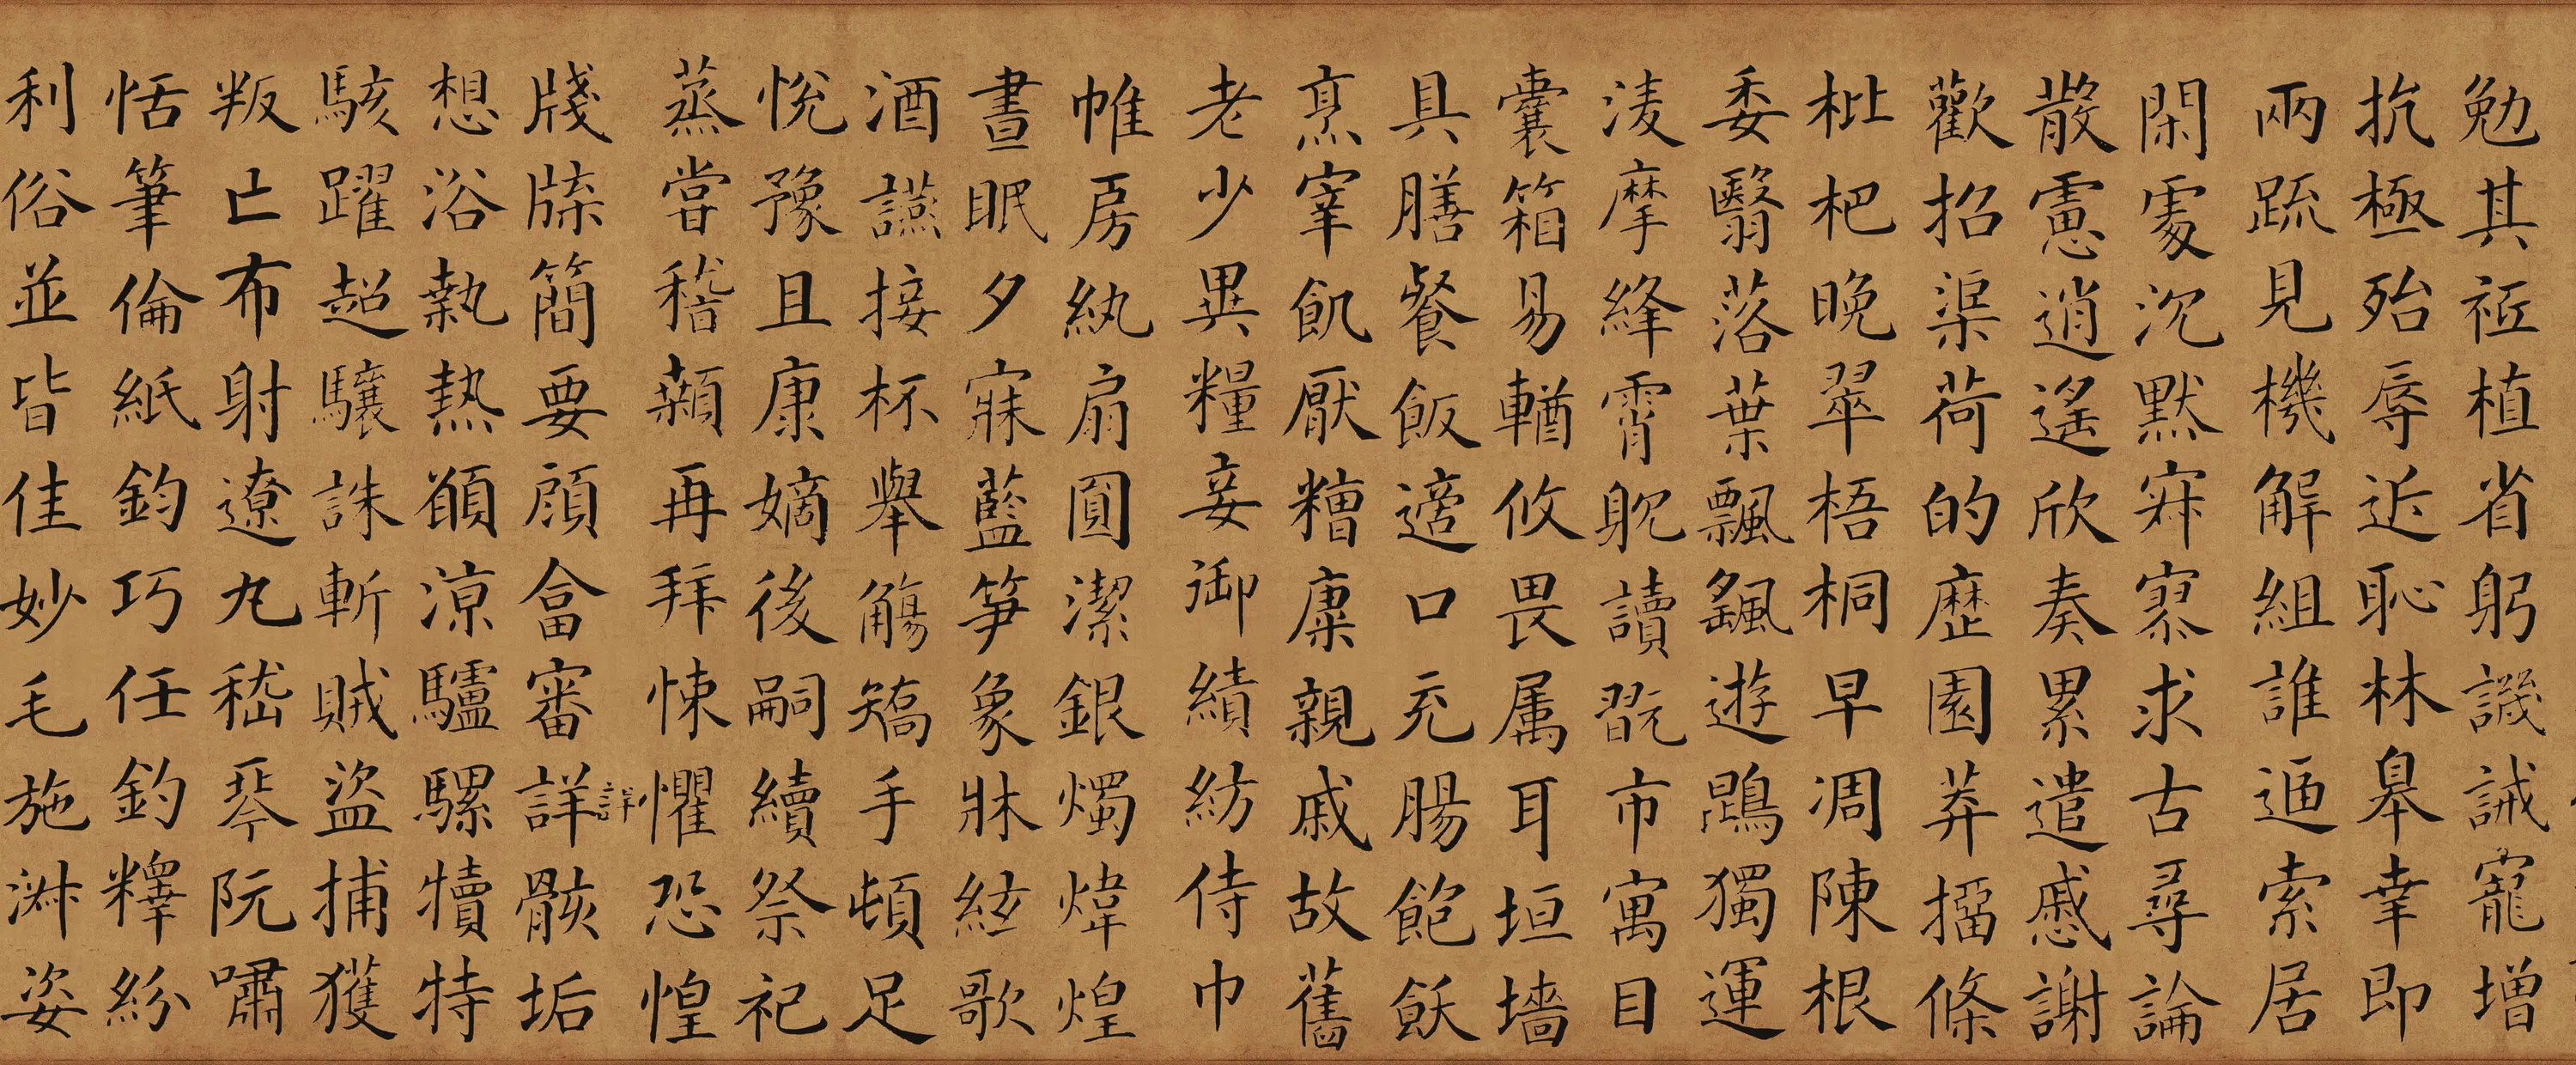 勉其祗植省躬譏誡寵增
抗極殆辱近恥林皋幸即
兩疏見機解組誰逼索居
閑處沉默寂寥求古尋論
散慮逍遙欣奏累遣慼謝
歡招渠荷的歷園莽抽條
枇杷晚翠梧桐早凋陳根
委翳落葉飄颻遊鵾獨運
凌摩絳霄耽讀翫市寓目
囊箱易輶攸畏属耳垣墻
具膳餐飯適口充腸飽飫
烹宰飢厭糟糠親戚故舊
老少異糧妾御績紡侍巾
帷房紈扇圓潔銀燭煒煌
晝眠夕寐藍笋象牀絃歌
酒讌接杯舉觴矯手頓足
悅豫且康嫡後嗣續祭祀
蒸嘗稽顙再拜悚懼恐惶
詳
牋牒簡要顧畣審詳骸垢
想浴執熱願涼驢騾犢特
駭躍超驤誅斬賊盜捕獲
叛亡布射遼丸嵇琴阮嘯
恬筆倫紙鈞巧任釣釋紛
利俗並皆佳妙毛施淑姿